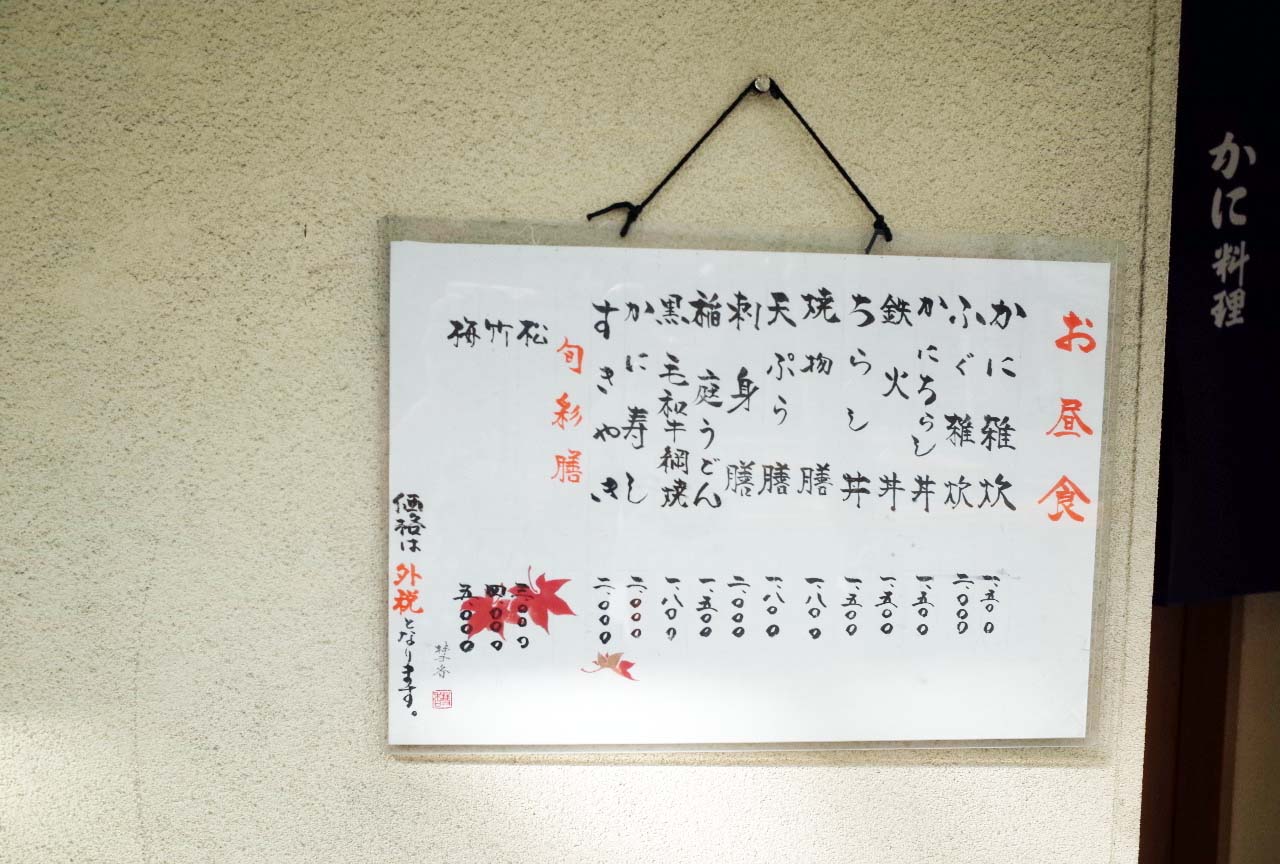 かに料理
お昼食
かに雑炊 一、五〇〇
ふぐ雑炊 二、〇〇〇
かにちらし丼 一、五〇〇
鉄火丼 一、五〇〇
ちらし丼 一、五〇〇
焼物膳 一、八〇〇
天ぷら膳 一、八〇〇
刺身膳 二、〇〇〇
稲庭うどん 一、五〇〇
黒毛和牛網焼 一、八〇〇
かに寿し 二、〇〇〇
すきやき 二、〇〇〇
旬彩膳
松 三、〇〇〇
竹 四、〇〇〇
梅 五、〇〇〇
価格は外税となります。